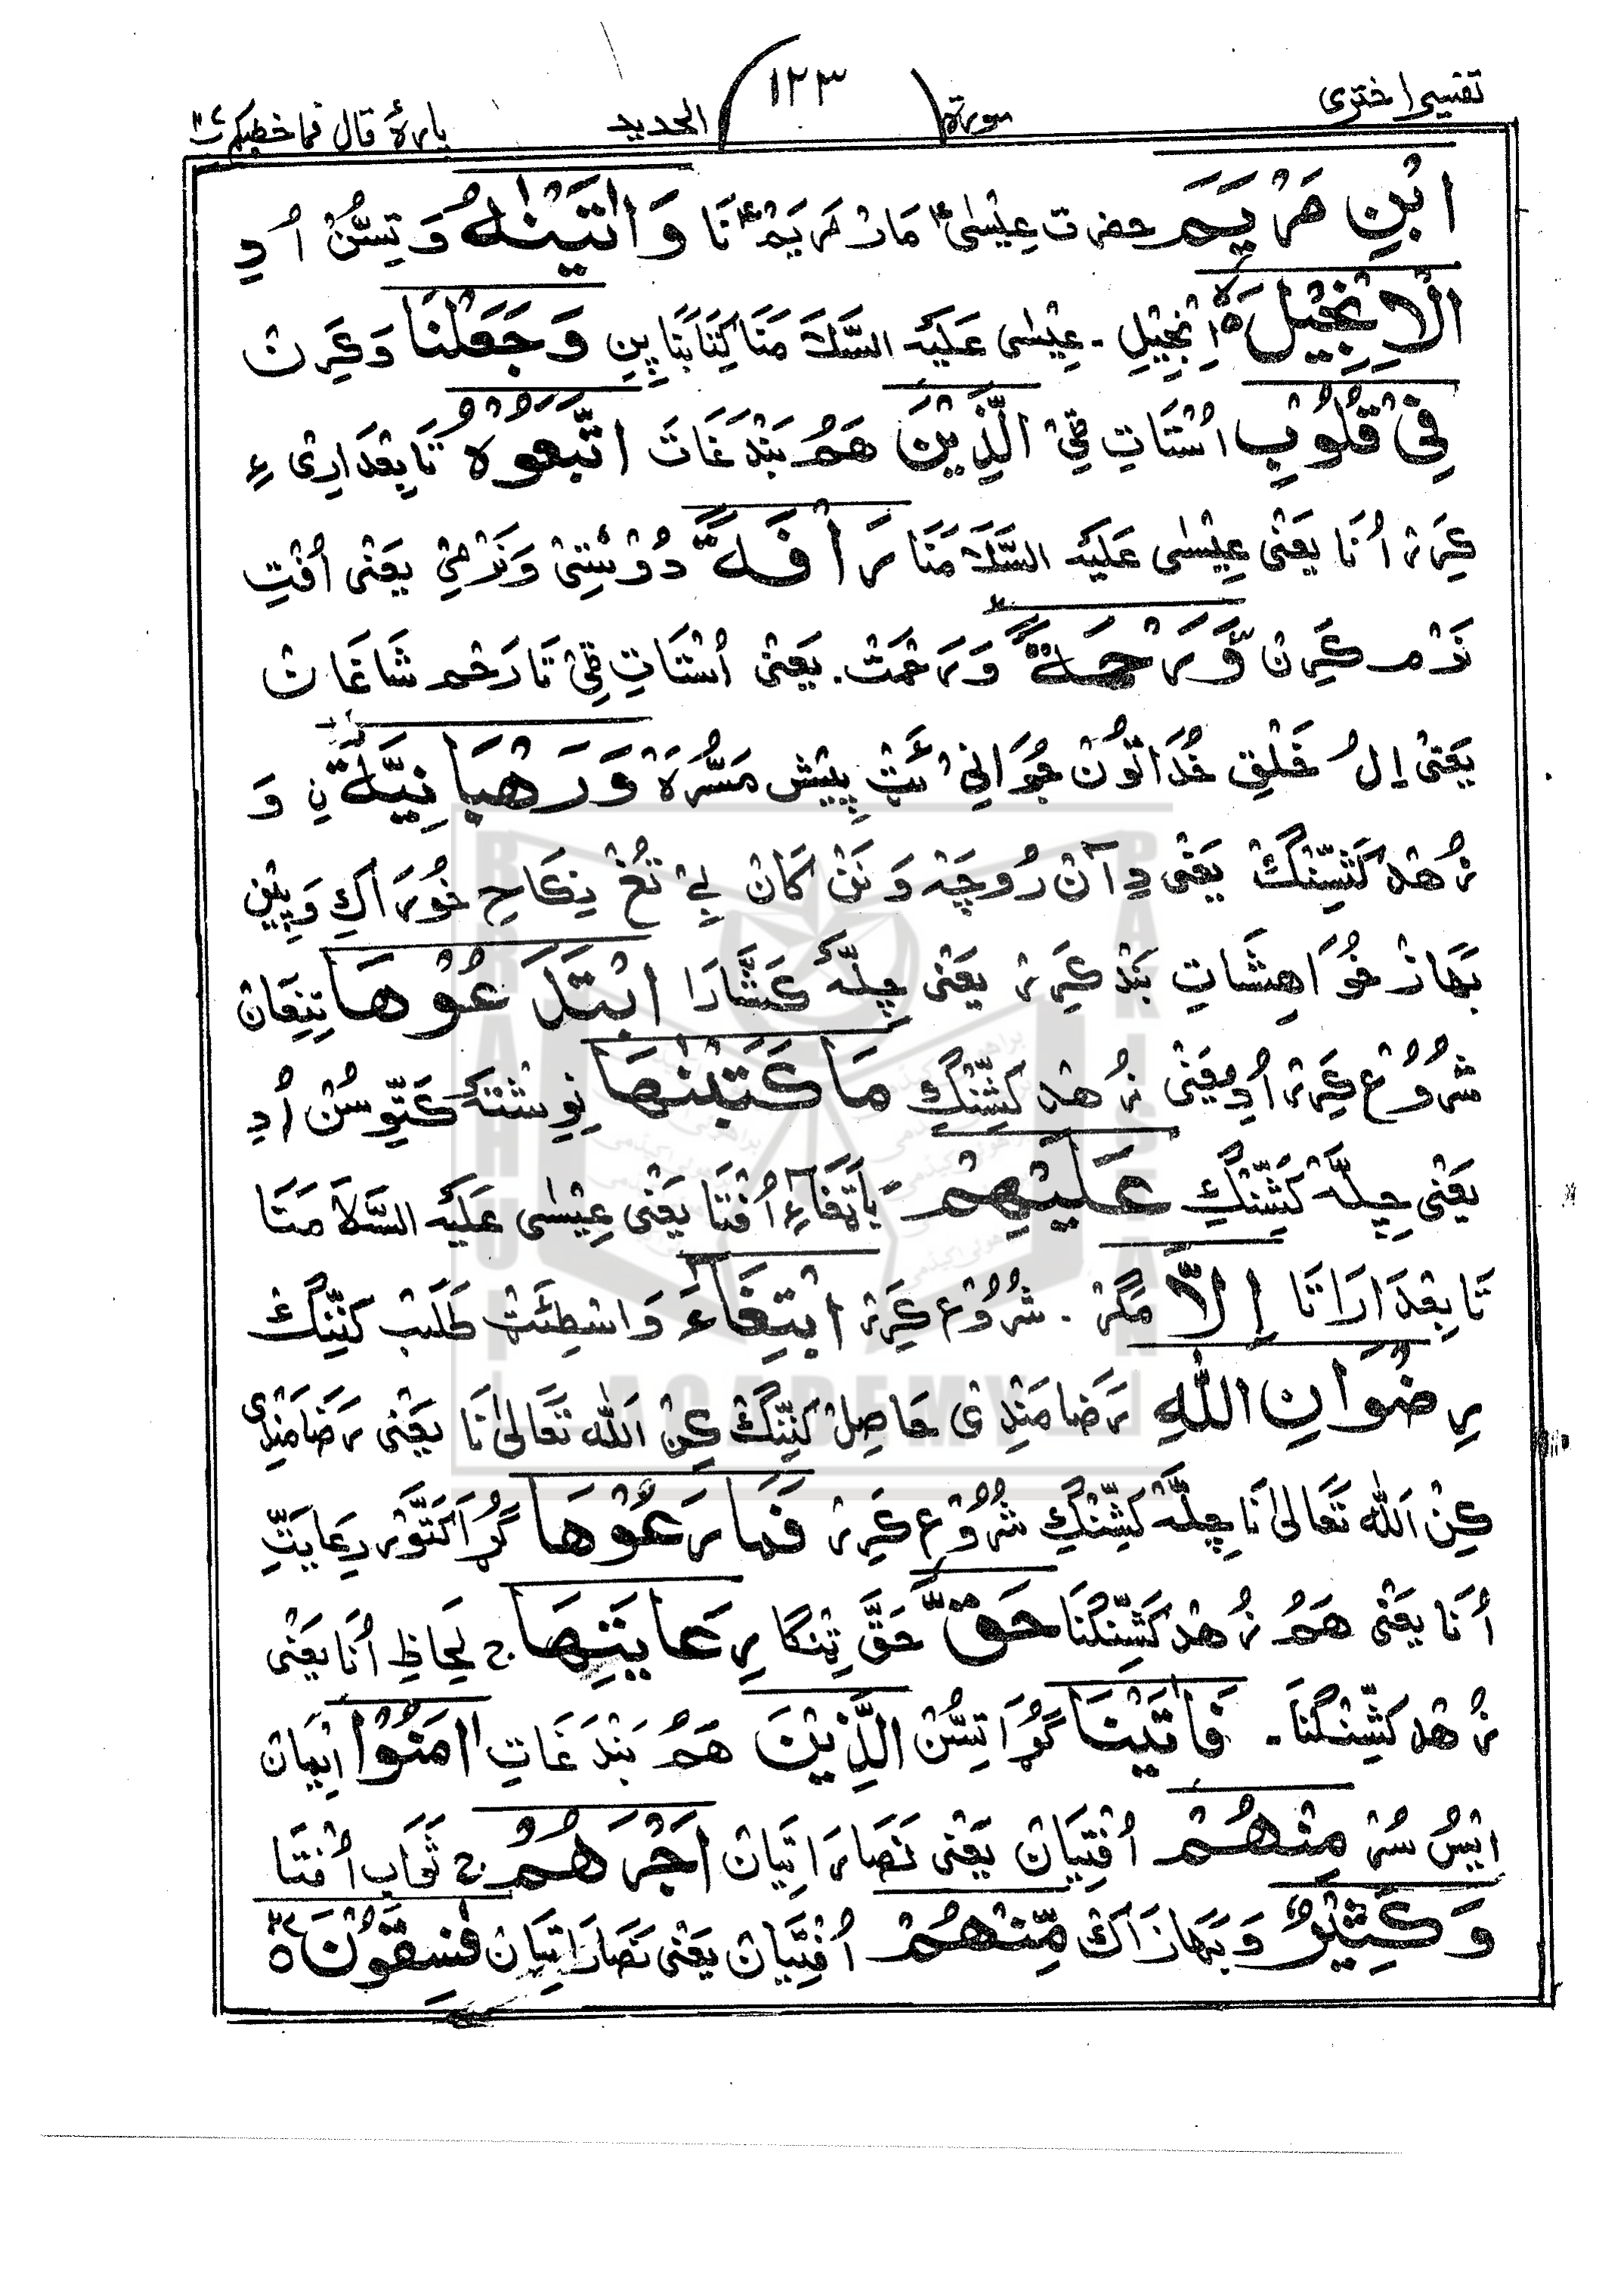 تفسیر اختری سورۃ ۱۲۳ الحدید پارۂ قال فما خطبکم ۲۷
ابْنِ مَرْیَمَ حضرت عِیْسٰیؑ مَار مَریَمؑ نَا وَاٰتَیْنٰهُ وَ تِسُّنْ اُدِ
الْاِنْجِیْلَ ۵ اِنْجِیْلِ ۔ عِیْسٰی عَلَیْه السَّلَامَنَا کِتَابَنَا پِنِ وَجَعَلْنَا وَ کَرِنْ
فِیْ قُلُوْبِ اُسْتَاتِ ٹِیْ الَّذِیْنَ هَمُ بَنْدَغَاتَ اتَّبَعُوْهُ تَابِعْدَارِیْ ءِ
کَرِرْ اُنَا یَعْنٰی عِیْسٰی عَلَیْه السَّلَامَنَا رَاْفَةً دُوْسْتِیْ وَ نَرْمِیْ یَعْنٰی اُفْتِ
نَرْم کَرِنْ وَّرَحْمَةً ؕ وَ رَحْمَتْ ۔ یَعْنٰی اُسْتَاتِ ٹِیْ تَا رَحْم شَاغَانْ
یَعْنٰی اِلُ خَلْقِ خُدَا تُوْن پِیْش مَسُّرَہ وَرَهْبَانِیَّةَ نِ وَ
زُهْد کَشِّنْگْ یَعْنٰی دِ آنْ رُوچَہ وَ نَنْ کَانْ بِیْ تُغْ نِکَاحِ خُوْرَاکِ وَ پِیْنِ
بَهَازْ خُوَاهِشَاتِ بَنْد کَرِرْ یَعْنٰی چِلَّهُ کَشَّارَا ابْتَدَعُوْهَا تِنِغَانْ
شُرُوْع کَرِرْ اُدِ یَعْنٰی زُهْد کَشِّنْگِ مَا کَتَبْنٰهَا نِوِشْتَه کَتَّوسُنْ اُدِ
یَعْنٰی چِلَّهْ کَشِّنْگِ عَلَیْهِمْ اُفْتَا یَعْنٰی عِیْسٰی عَلَیْه السَّلَامَنَا
تَابِعْدَارَاتَا اِلَّا مَگَرْ ۔ شُرُوْع کَرِرْ ابْتِغَآءَ وَاسْطِئَتْ طَلَبْ کَنِّنْگْ
رِضْوَانِ اللّٰهِ رَضَامَنْدِیْ حَاصِلْ کَنِّنْگْ کِنْ اَللّٰه تَعَالٰی نَا یَعْنٰی رَضَامَنْدِی
کِنْ اَللّٰه تَعَالٰی نَا چِلَّهْ کَشِّنْگِ شُرُوْع کَرِرْ فَمَا رَعَوْهَا گُڑَا کَتَّوْر رِعَایَتِ
اُنَا یَعْنٰی هَمُ زُهْد کَشِّنْگْنَا حَقَّ حَقَّ تِنْگَا رِعَایَتِهَا ج لِحَاظِ اُنَا یَعْنٰی
زُهْد کَشِّنْگْنَا ۔ فَاٰتَیْنَا گُڑَا تِسُّنْ الَّذِیْنَ هَمُ بَنْدَغَاتِ اٰمَنُوْا اِیْمَانْ
اِیْسُ سُرْ مِنْهُمْ اُفْتِیَانْ یَعْنٰی نَصَارَاتِیَانْ اَجْرَهُمْ ج ثَوَاب اُفْتَا
وَكَثِیْرٌ وَ بَهَازَاک مِّنْهُمْ اُفْتِیَانْ یَعْنٰی نَصَارَاتِیَانْ فٰسِقُوْنَ ۵ ۲۷
BRAHUI ACADEMY PAKISTAN